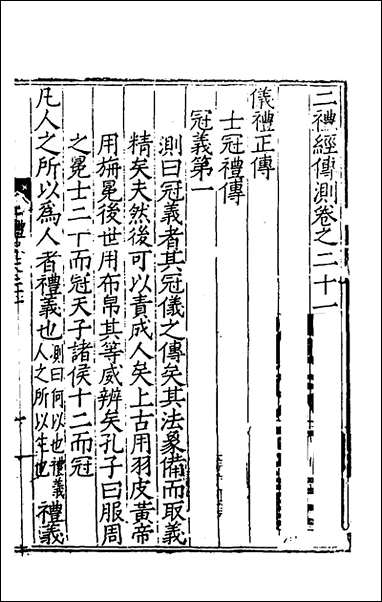 二禮經傳測卷之二十一
儀禮正傳
士冠禮傳
冠義第一
測曰冠義者其冠儀之傳矣其法象備而取義
精矣夫然後可以責成人矣上古用羽皮黃帝
用旃冕後世用布帛其等威辨矣孔子曰服周
之冕士二十而冠天子諸侯十二而冠
凡人之所以爲人者禮義也測曰何以也禮義人之所以生也禮義